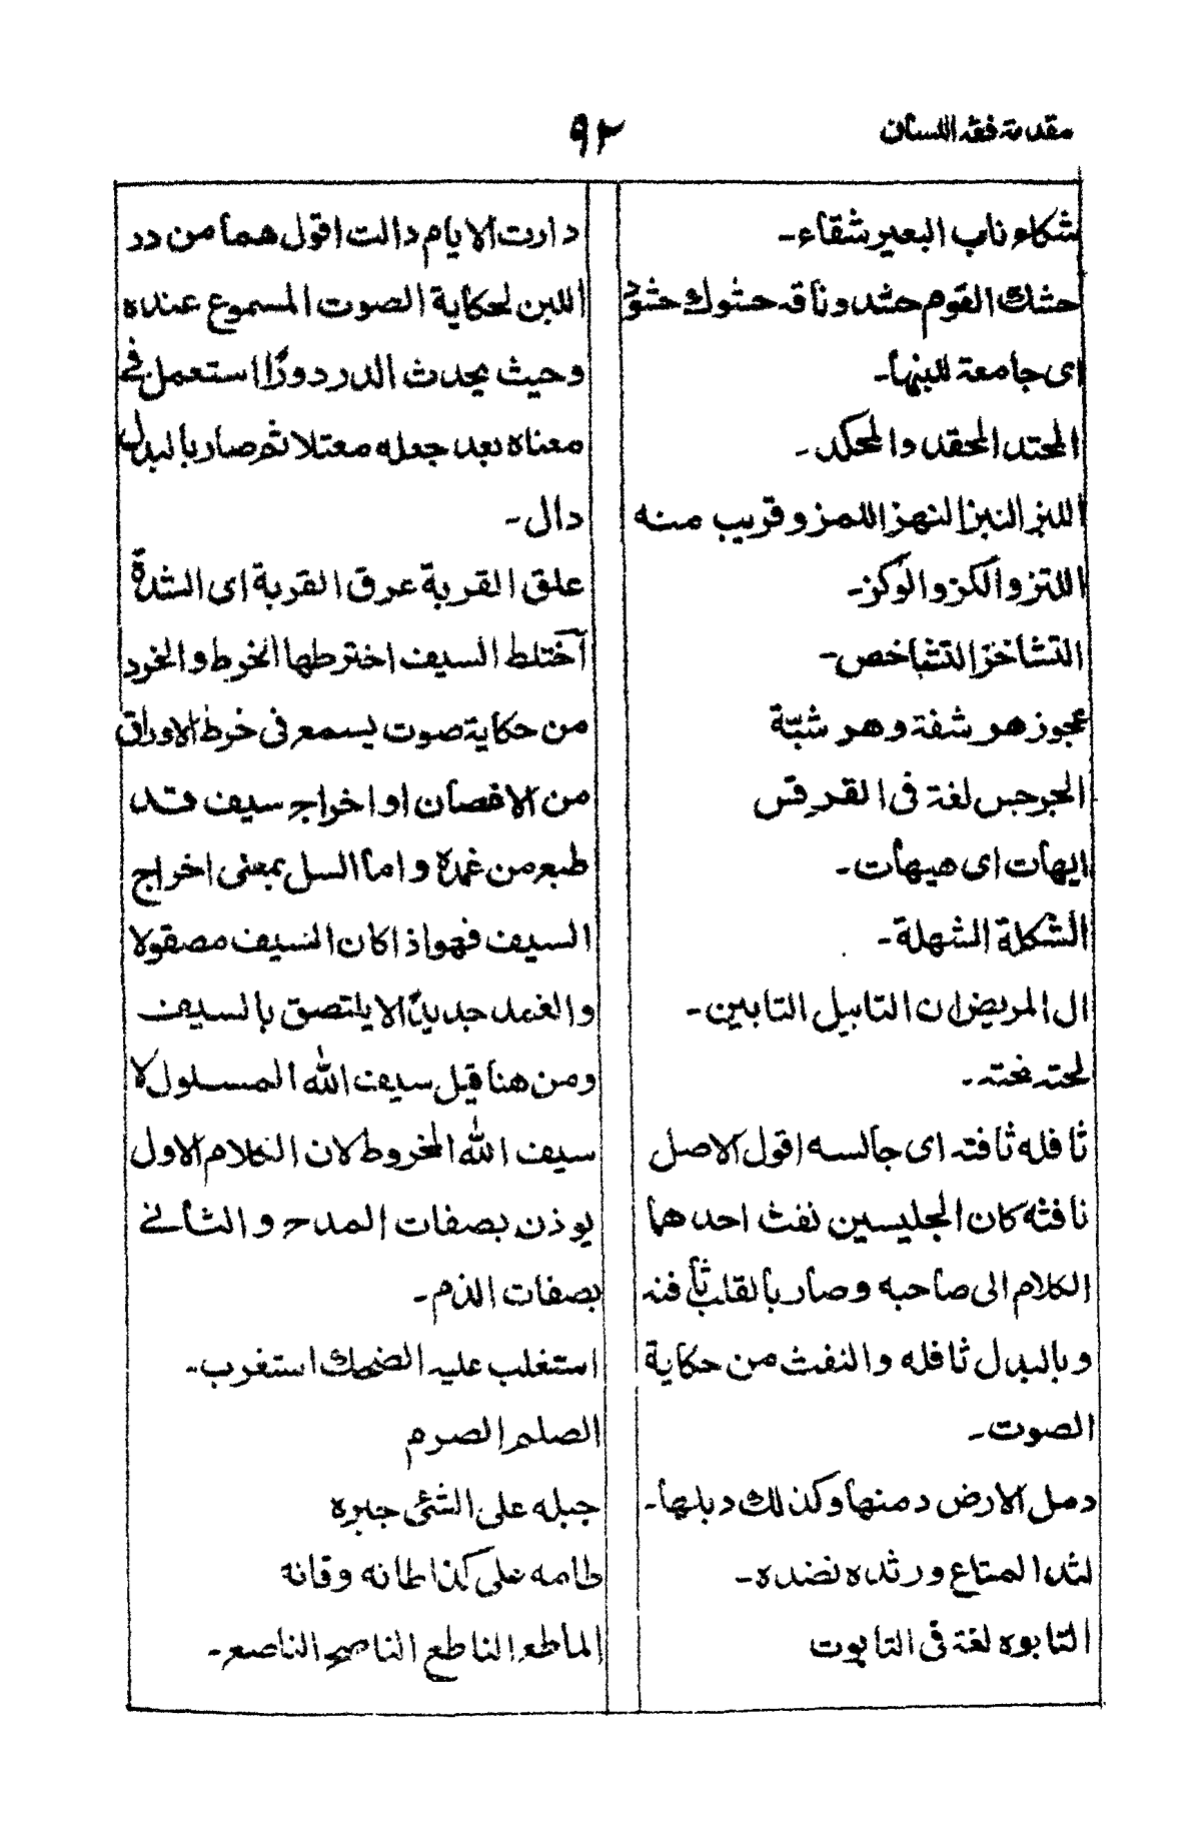 مقدمة فقه اللسان
٩٢
شكاء ناب البعير شقاء۔
حشك القوم حشد وناقه حشوك حشود
اى جامعة للبنها۔
المحتد المحقد والمحكد۔
اللبز النبز النهز اللمز وقريب منه
اللتز والكز والوكز۔
التشاخز التشاخص۔
عجوز هر شفة وهر شبّة
الجرجس لغة فى القرقس
ايهات اى هيهات۔
الشكلة الشهلة۔
ال المريض ان التابيل التابين۔
لحته نحته۔
ثافله ثافنه اى جالسه اقول الاصل
نافثه كان الجليسين نفث احدهما
الكلام الى صاحبه وصار بالقلب ثافنه
وبالبدل ثافله والنفث من حكاية
الصوت۔
دمل الارض دمنها وكذلك دبلها۔
لثد المتاع ورثده نضده۔
التابوه لغة فى التابوت
دارت الايام دالت اقول هما من در
اللبن لحكاية الصوت المسموع عنده
وحيث يحدث الدر دورًا استعمل فى
معناه بعد جعله معتلا ثم صار بالبدل
دال۔
علق القربة عرق القربة اى الشدة
آختلط السيف اخترطها الخرط والخرد
من حكاية صوت يسمع فى خرط الاوراق
من الاغصان او اخراج سيف قد
طبع من غمدة واما السل بمعنى اخراج
السيف فهو اذا كان السيف مصقولا
والغمد جديدًا لا يلتصق بالسيف
ومن هنا قيل سيف الله المسلول لا
سيف الله المخروط لان الكلام الاول
يوذن بصفات المدح والثانى
بصفات الذم۔
استغلب عليه الضحك استغرب۔
الصلم الصرم
جبله على الشئى جبره
طامه على كذا طانه وقانه
الماطع الناطع الناصح الناصع۔